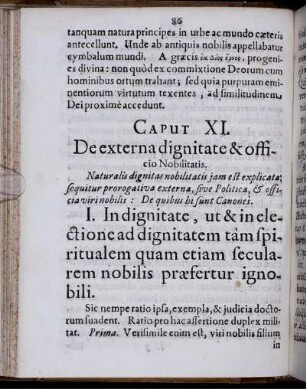 86
tanquam natura principes in urbe ac mundo cæteris
antecellunt. Unde ab antiquis nobilis appellabatur
cymbalum mundi. A græcis ἐκ Διὸς ἔρνος. progeni-
es divina: non quòd ex commixtione Deorum cum
hominibus ortum trahant; sed quia purpuram emi-
nentiorum virtutum texentes, ad similitudinem
Dei proximè accedunt.
CAPUT XI.
De externa dignitate & offi-
cio Nobilitatis.
Naturalis dignitas nobilitatis jam est explicata;
sequitur prorogativa externa, sive Politica, & of-
ficia viri nobilis: De quibus hi sunt Canones.
I. In dignitate, ut & in ele-
ctione ad dignitatem tàm spi-
ritualem quam etiam secula-
rem nobilis præfertur igno-
bili.
Sic nempe ratio ipsa, exempla, & judicia docto-
rum suadent. Ratio pro hac assertione duplex mili-
tat. Prima. Verisimile enim est, viri nobilis filium
in